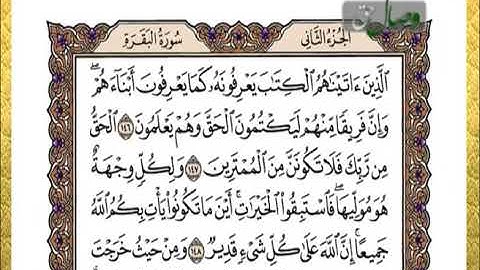 الجزء الثاني
سورة البقرة
ٱلَّذِينَ ءَاتَيْنَٰهُمُ ٱلْكِتَٰبَ يَعْرِفُونَهُۥ كَمَا يَعْرِفُونَ أَبْنَآءَهُمْۖ
وَإِنَّ فَرِيقًا مِّنْهُمْ لَيَكْتُمُونَ ٱلْحَقَّ وَهُمْ يَعْلَمُونَ ١٤٦ ٱلْحَقُّ
مِن رَّبِّكَ فَلَا تَكُونَنَّ مِنَ ٱلْمُمْتَرِينَ ١٤٧ وَلِكُلٍّ وِجْهَةٌ
هُوَ مُوَلِّيهَاۖ فَٱسْتَبِقُوا۟ ٱلْخَيْرَٰتِۚ أَيْنَ مَا تَكُونُوا۟ يَأْتِ بِكُمُ ٱللَّهُ
جَمِيعًاۚ إِنَّ ٱللَّهَ عَلَىٰ كُلِّ شَىْءٍ قَدِيرٌ ١٤٨ وَمِنْ حَيْثُ خَرَجْتَ